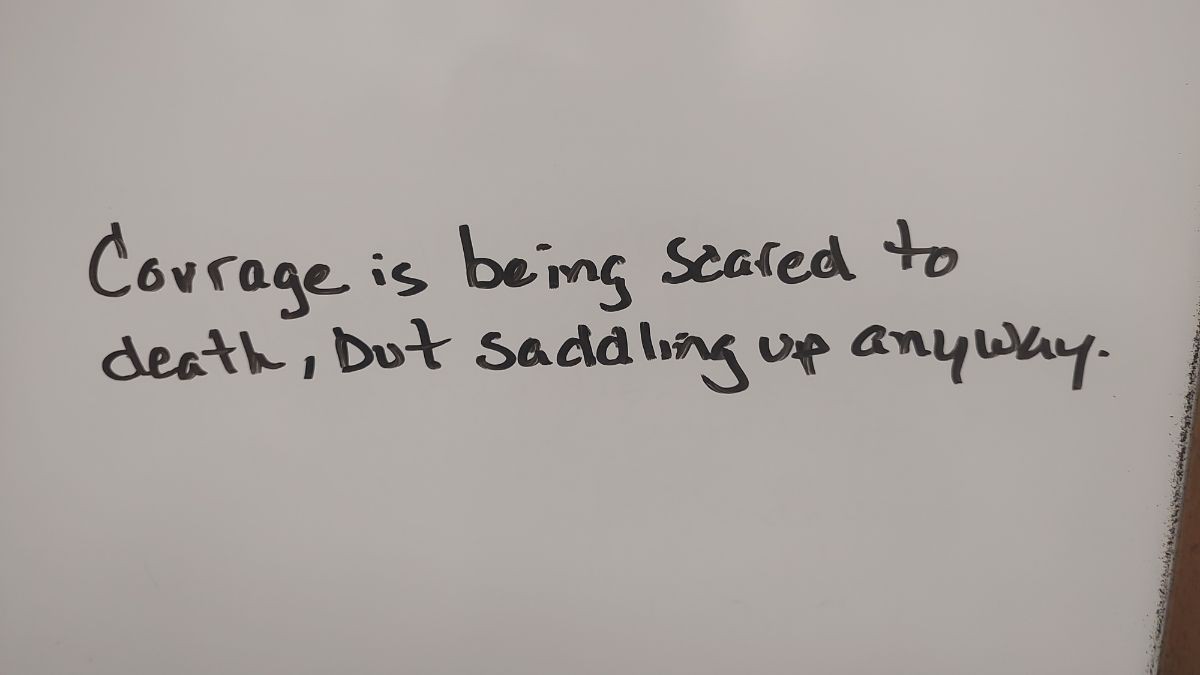 Courage is being scared to
death, but saddling up anyway.